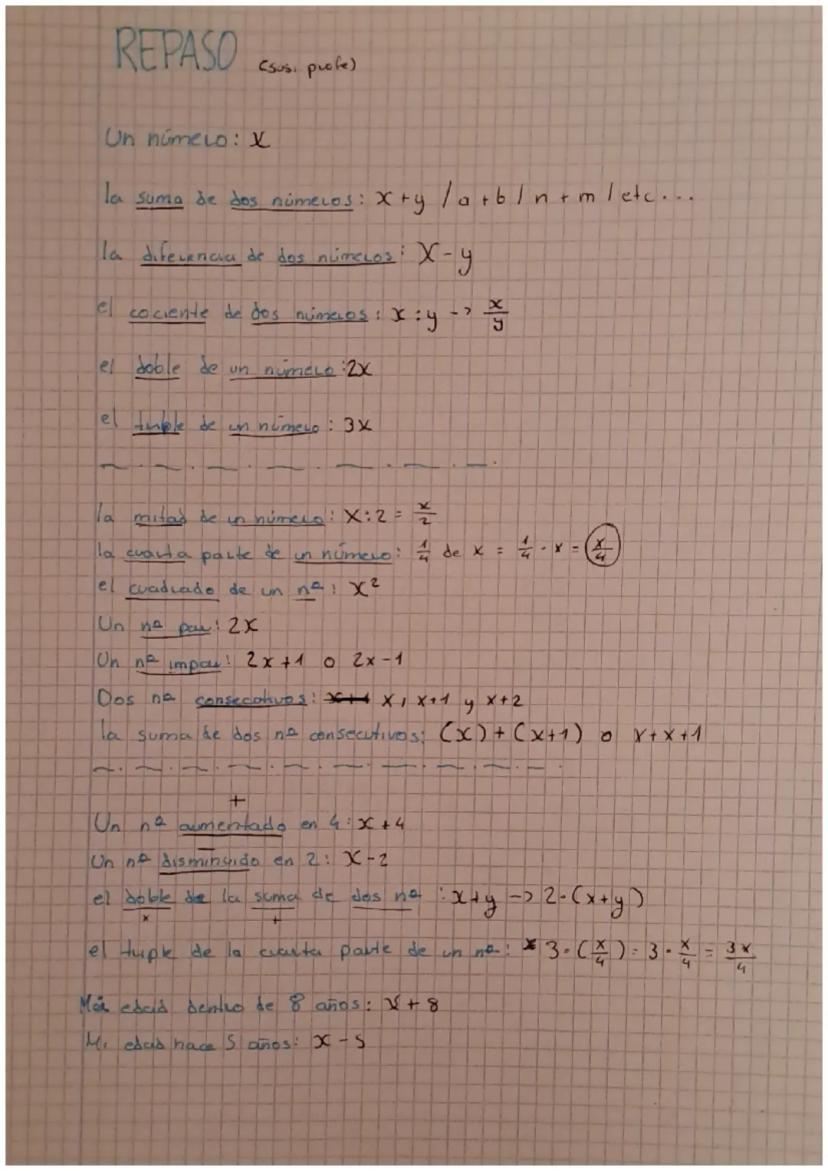 REPASO (susi profe)
Un número: x
la suma de dos números: x+y / a+b / n+m / etc...
la diferencia de dos números: x-y
el cociente de dos números: x:y -> x/y
el doble de un número: 2x
el triple de un número: 3x
la mitad de un número: x:2 = x/2
la cuarta parte de un número: 1/4 de x = 1/4 · x = x/4
el cuadrado de un nº: x²
Un nº par: 2x
Un nº impar: 2x+1 o 2x-1
Dos nº consecutivos: x+1 x, x+1 y x+2
la suma de dos nº consecutivos: (x)+(x+1) o x+x+1
+
Un nº aumentado en 4: x+4
-
Un nº disminuido en 2: x-2
el doble de la suma de dos nº: x+y -> 2·(x+y)
x +
el triple de la cuarta parte de un nº: 3·(x/4) = 3·x/4 = 3x/4
Mi edad dentro de 8 años: x+8
Mi edad hace 5 años: x-5